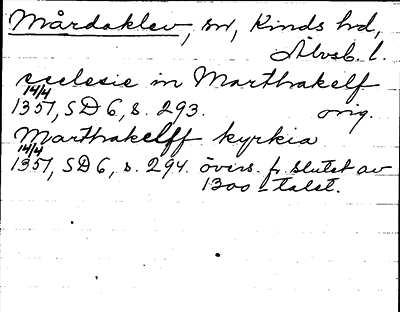 Mårdaklev, sn, Kinds hd,
Älvsb. l.
ecclesie in Marthakelf
14/4
1351, SD 6, s. 293. orig.
Marthakelff kyrkia
14/4
1351, SD 6, s. 294. övers. fr. slutet av
1300-talet.